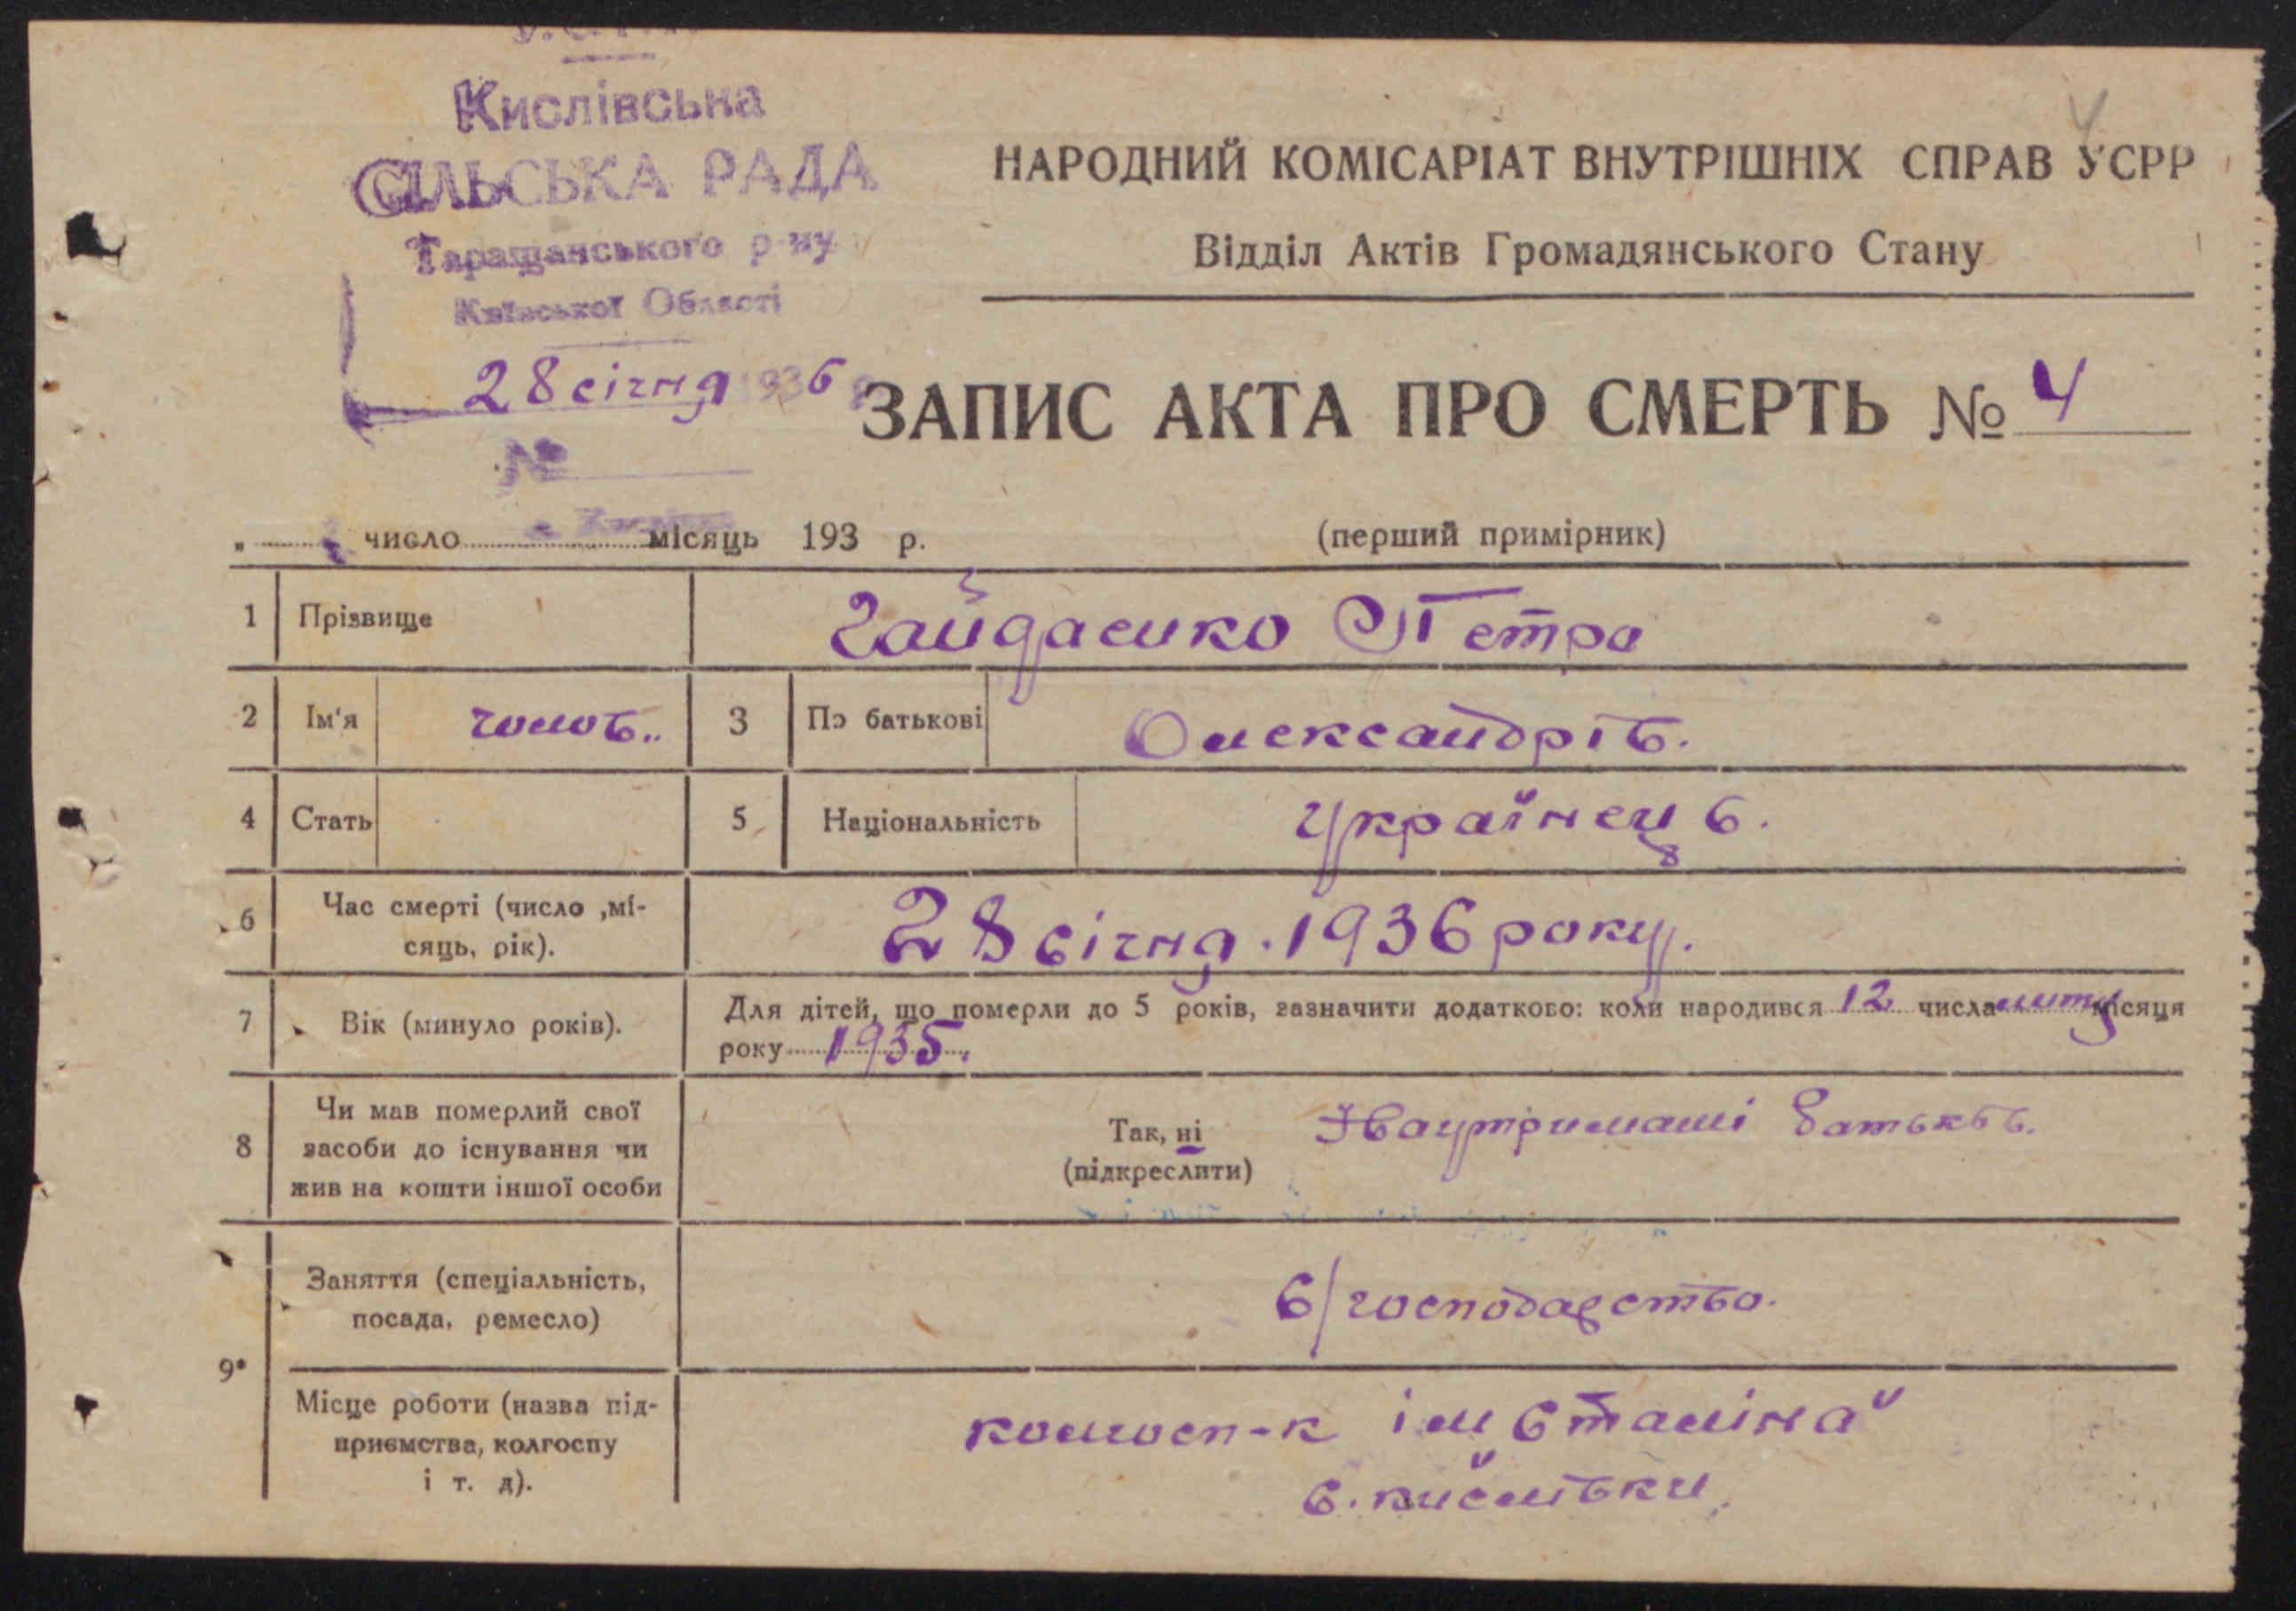 Кислівська
СІЛЬСЬКА РАДА
Таращанського р-ну
Київської Області
28 січня 1936
№
НАРОДНИЙ КОМІСАРІАТ ВНУТРІШНІХ СПРАВ УСРР
Відділ Актів Громадянського Стану
ЗАПИС АКТА ПРО СМЕРТЬ № 4
„ число місяць 193 р.
(перший примірник)
1 Прізвище Гайдаенко Петро
2 Ім'я чолов.. 3 По батькові Олександрів.
4 Стать 5 Національність Українець.
6 Час смерті (число ,мі-
сяць, рік). 28 січня. 1936 року.
7 Вік (минуло років). Для дітей, що померли до 5 років, зазначити додатково: коли народився 12 числа місяця
року 1935.
8 Чи мав померлий свої
засоби до існування чи
жив на кошти іншої особи
Так, ні
(підкреслити)
батьків.
9 Заняття (спеціальність,
посада, ремесло) С/господарство.
Місце роботи (назва під-
приємства, колгоспу
і т. д). колгосп-к ім Сталіна"
с. кислівки